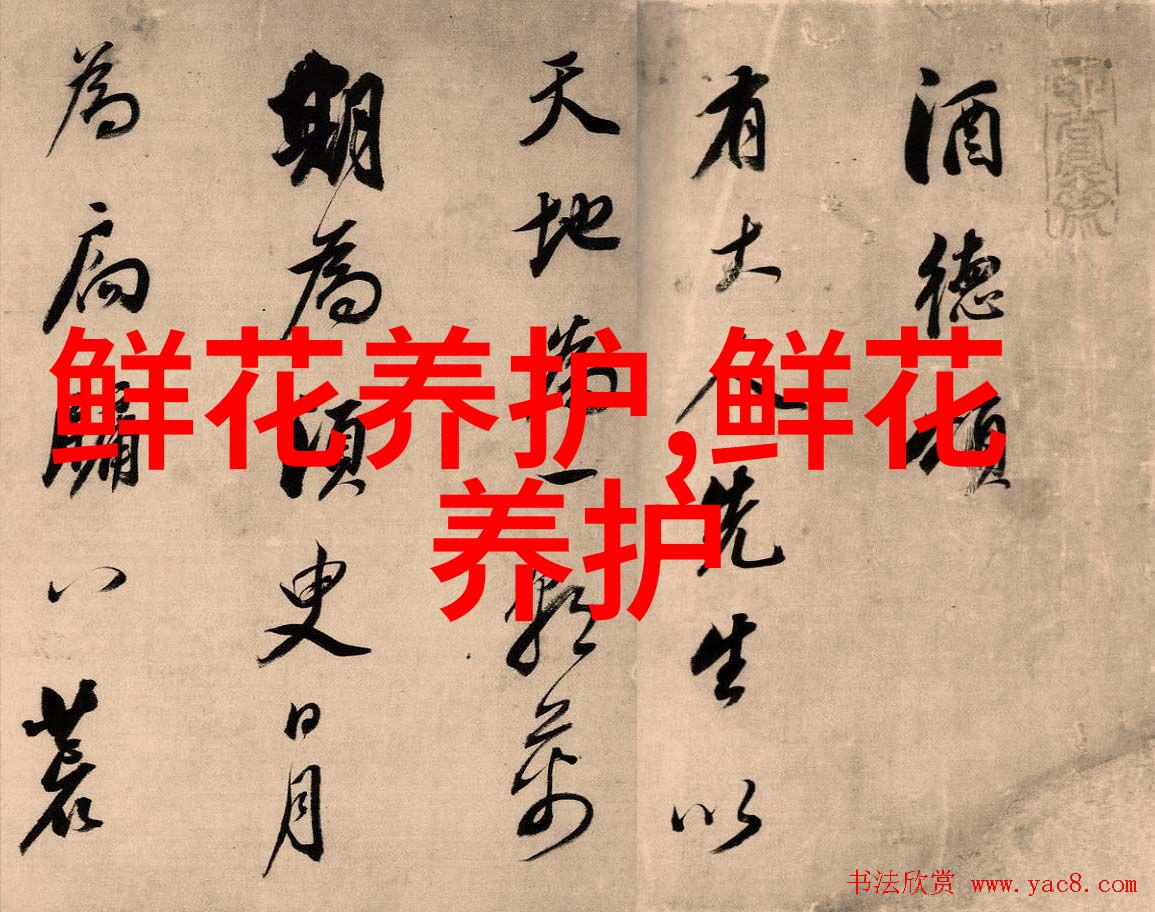 酒德頌
有大人先生以
天地為一朝萬
期為須臾日月
為扃牖八荒
鲜花养护,鲜花
养护
书法欣赏 www.yac8.com